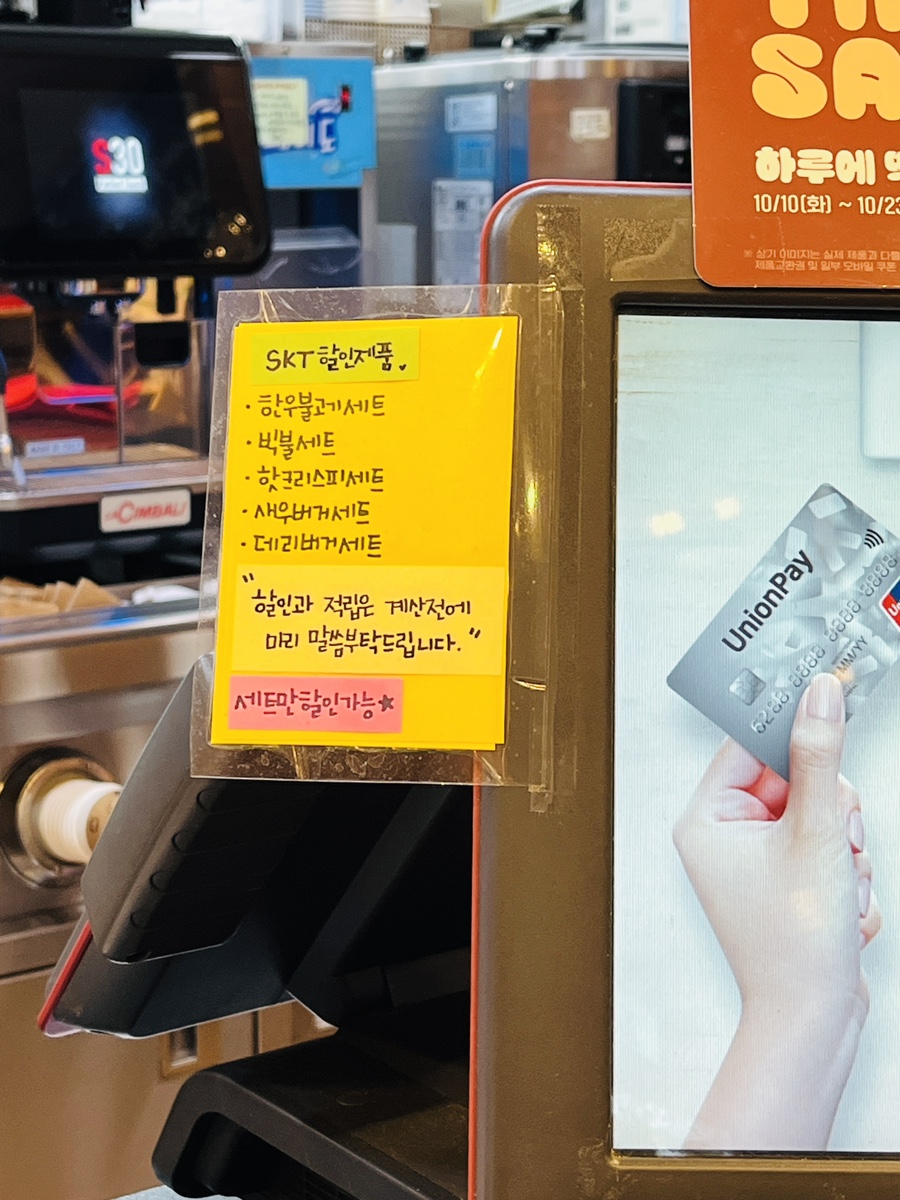 S30
SA
하루에
10/10(화) ~ 10/23
※ 상기 이미지는 실제 제품과 다를
제품교환권 및 일부 모바일 쿠폰
SKT 할인제품
· 한우불고기세트
· 빅불세트
· 핫크리스피세트
· 새우버거세트
· 데리버거세트
"할인과 적립은 계산전에
미리 말씀부탁드립니다."
세트만할인가능★
LACIMBALI
UnionPay
6288 8888 8888 8888
MM/YY